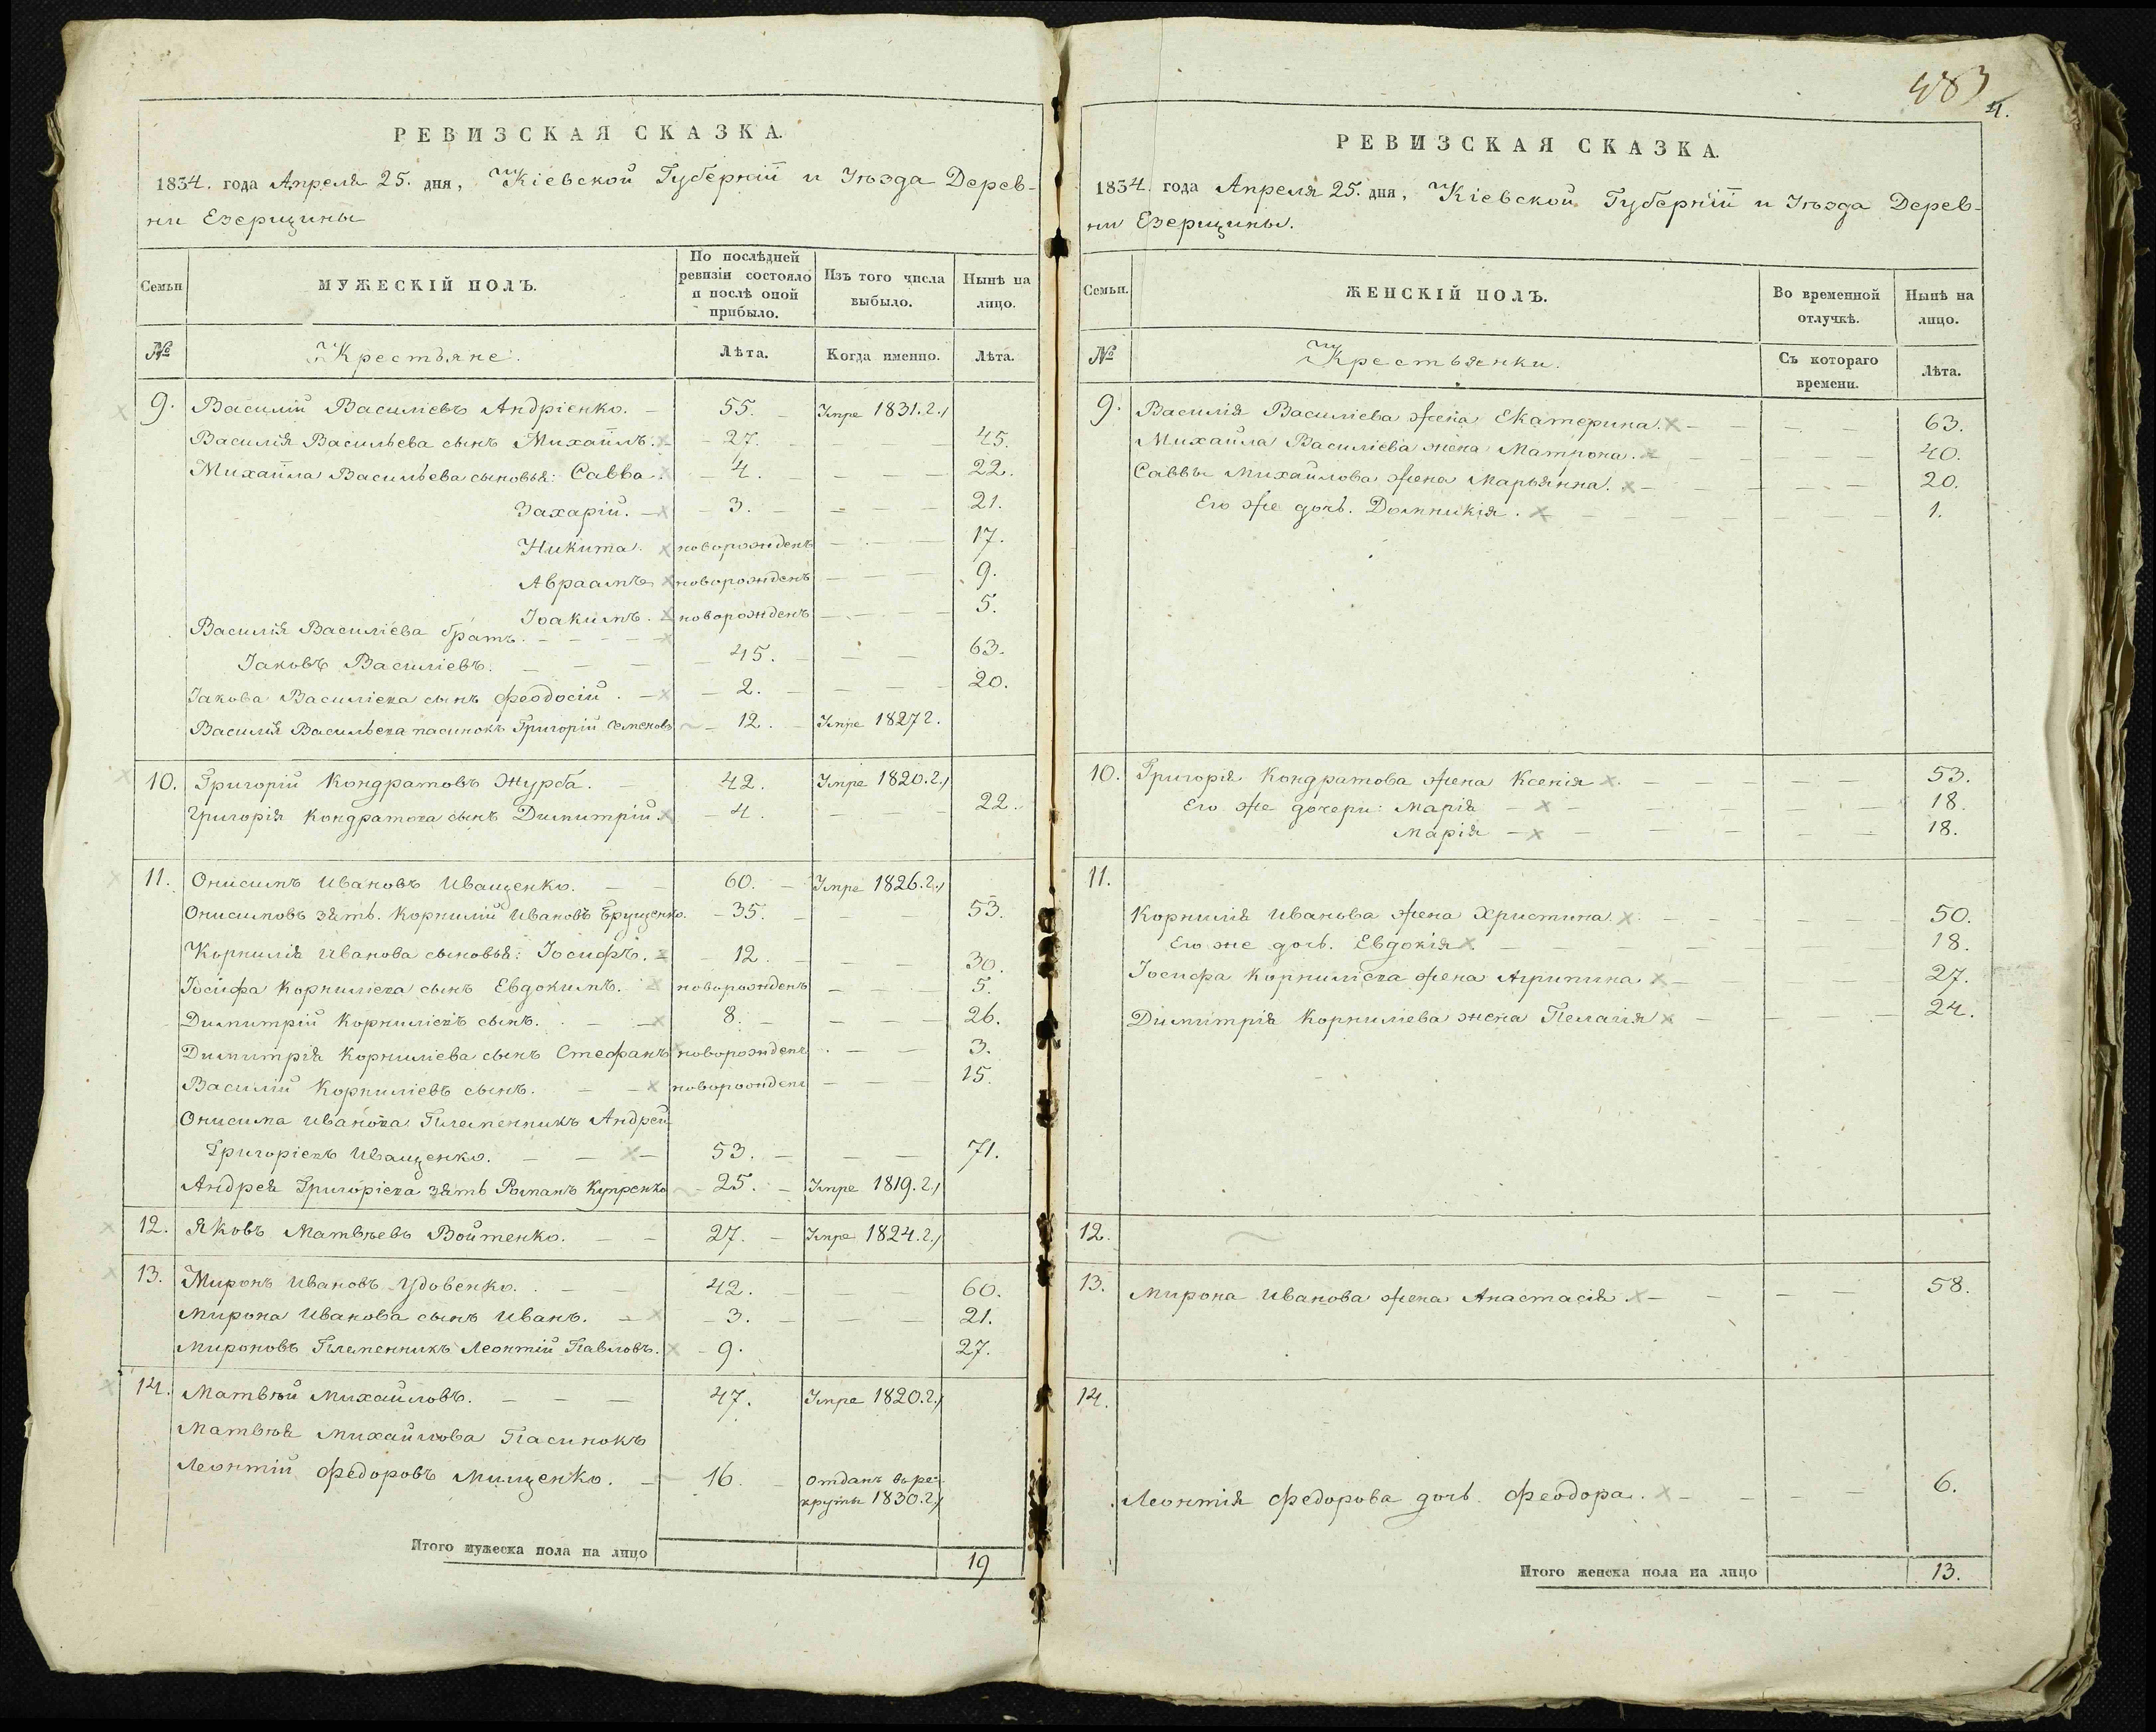 РЕВИЗСКАЯ СКАЗКА.
1834. года Апреля 25. дня, Кіевской Губерніи и Уѣзда Дерев-
ни Езерщины
Семьи
МУЖЕСКІЙ ПОЛЪ.
По послѣдней
ревизіи состояло
и послѣ оной
прибыло.
Изъ того числа
выбыло.
Нынѣ на
лицо.
№ Крестьяне. Лѣта. Когда именно. Лѣта.
9. Василій Василіевъ Андріенко. 55. Умре 1831.г.
Василія Васильева сынъ Михаилъ. 27. 45.
Михаила Васильева сыновья: Савва. 4. 22.
Захарій. 3. 21.
Никита. новорожденъ 17.
Авраамъ новорожденъ 9.
Іоакимъ. новорожденъ 5.
Василія Василіева братъ.
Іаковъ Василіевъ. 45. 63.
Іакова Василіева сынъ Феодосій. 2. 20.
Василія Васильева пасинокъ Григорій Семеновъ 12. Умре 1827 г.
10. Григорій Кондратовъ Журба. 42. Умре 1820.г.
Григорія Кондратова сынъ Димитрій 4. 22.
11. Онисимъ Ивановъ Иващенко. 60. Умре 1826.г.
Онисимовъ зять. Корнилій Ивановъ Ерущенко. 35. 53.
Корнилія Иванова сыновья: Іосифъ. 12. 30.
Іосифа Корниліева сынъ Евдокимъ. новорожденъ 5.
Димитрій Корниліевъ сынъ. 8. 26.
Димитрія Корниліева сынъ Стефанъ новорожденъ 3.
Василій Корниліевъ сынъ. новорожденъ 15.
Онисима Иванова Племенникъ Андрей
Григоріевъ Иващенко. 53. 71.
Андрея Григоріева зять Романъ Купренко 25. Умре 1819.г.
12. Яковъ Матвѣевъ Войтенко. 27. Умре 1824.г.
13. Миронъ Ивановъ Удовенко. 42. 60.
Мирона Иванова сынъ Иванъ. 3. 21.
Мироновъ Племенникъ Леонтій Павловъ. 9. 27.
14. Матвѣй Михайловъ. 47. Умре 1820.г.
Матвѣя Михайлова Пасинокъ
Леонтій Федоровъ Мищенко. 16. Отданъ въ ре-
круты 1830.г.
Итого мужеска пола на лицо 19
483
4.
РЕВИЗСКАЯ СКАЗКА.
1834. года Апреля 25. дня, Кіевской Губерніи и Уѣзда Дерев-
ни Езерщины.
Семьи.
ЖЕНСКІЙ ПОЛЪ.
Во временной
отлучкѣ.
Нынѣ на
лицо.
№ Крестьянки.
Съ котораго
времени.
Лѣта.
9. Василія Василіева жена Екатерина. 63.
Михаила Василіева жена Матрона. 40.
Саввы Михайлова жена Марьянна. 20.
Его же дочь. Домникія. 1.
10. Григорія Кондратова жена Ксенія 53.
Его же дочери: Марія 18.
Марія 18.
11.
Корнилія Иванова жена Христина. 50.
Его же дочь. Евдокія 18.
Іосифа Корниліева жена Агрипина 27.
Димитрія Корниліева жена Пелагія 24.
12.
13. Мирона Иванова жена Анастасія. 58.
14.
Леонтія Федорова дочь. Феодора. 6.
Итого женска пола на лицо 13.